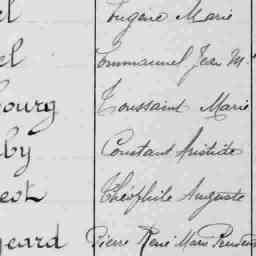 el Eugène Marie
el Emmanuel Jean M.
bourg Toussaint Marie
by Constant Aristide
eot Théophile Auguste
geard Pierre René Marie